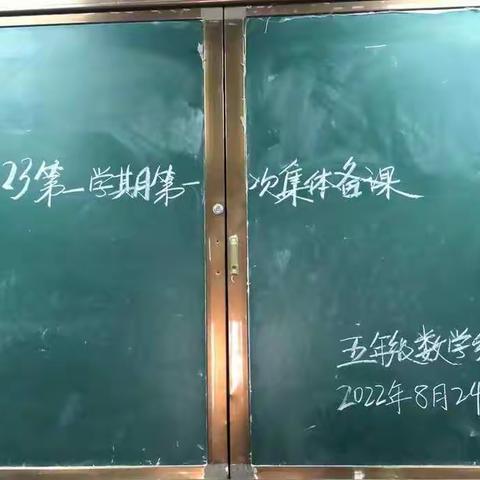 23第一学期第一次集体备课
五年级数学
2022年8月24